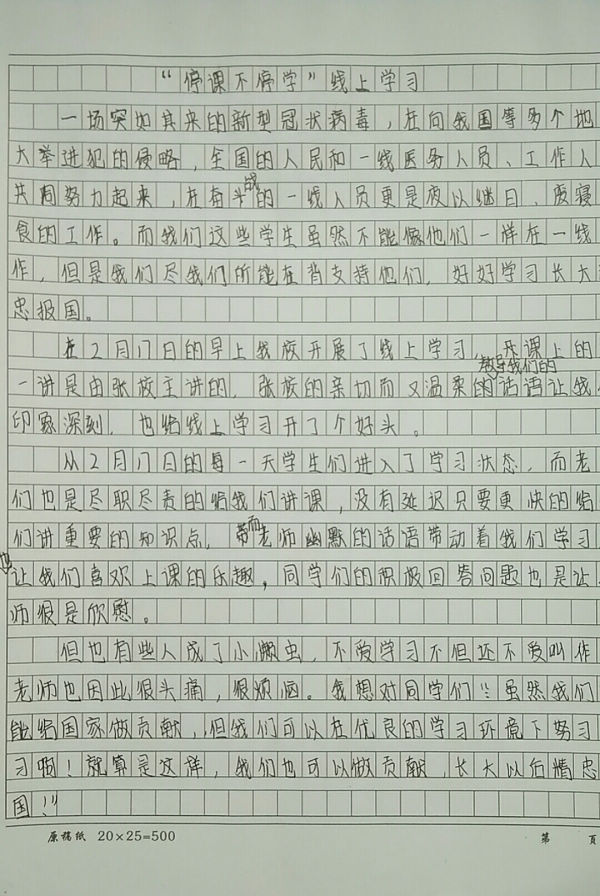 “停课不停学”线上学习
一场突如其来的新型冠状病毒，在向我国等多个地
大举进犯的侵略，全国的人民和一线医务人员、工作人
共同努力起来，在奋斗战的一线人员更是夜以继日、废寝
食的工作。而我们这些学生虽然不能像他们一样在一线
作，但是我们尽我们所能在背支持他们，好好学习长大
忠报国。
在2月17日的早上我校开展了线上学习，开课上的
一讲是由张校主讲的，张校的亲切而又温柔的教导我们的话语让我
印象深刻，也给线上学习开了个好头。
从2月17日的每一天学生们进入了学习状态，而老
们也是尽职尽责的给我们讲课，没有延迟只要更快的给
们讲重要的知识点，而老师幽默的话语带动着我们学习
也让我们喜欢上课的乐趣，同学们的积极回答问题也是让
师很是欣慰。
但也有些人成了小懒虫，不爱学习不但还不爱叫作
老师也因此很头痛，很烦恼。我想对同学们：虽然我们
能给国家做贡献，但我们可以在优良的学习环境下努习
习啊！就算是这样，我们也可以做贡献，长大以后精忠
国！！！
原稿纸 20×25=500 第 页